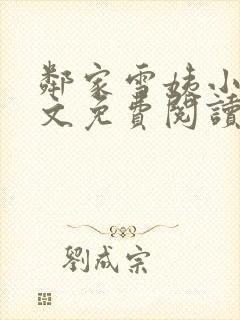 鄰家雪姨小
文免費閱讀
劉成宗